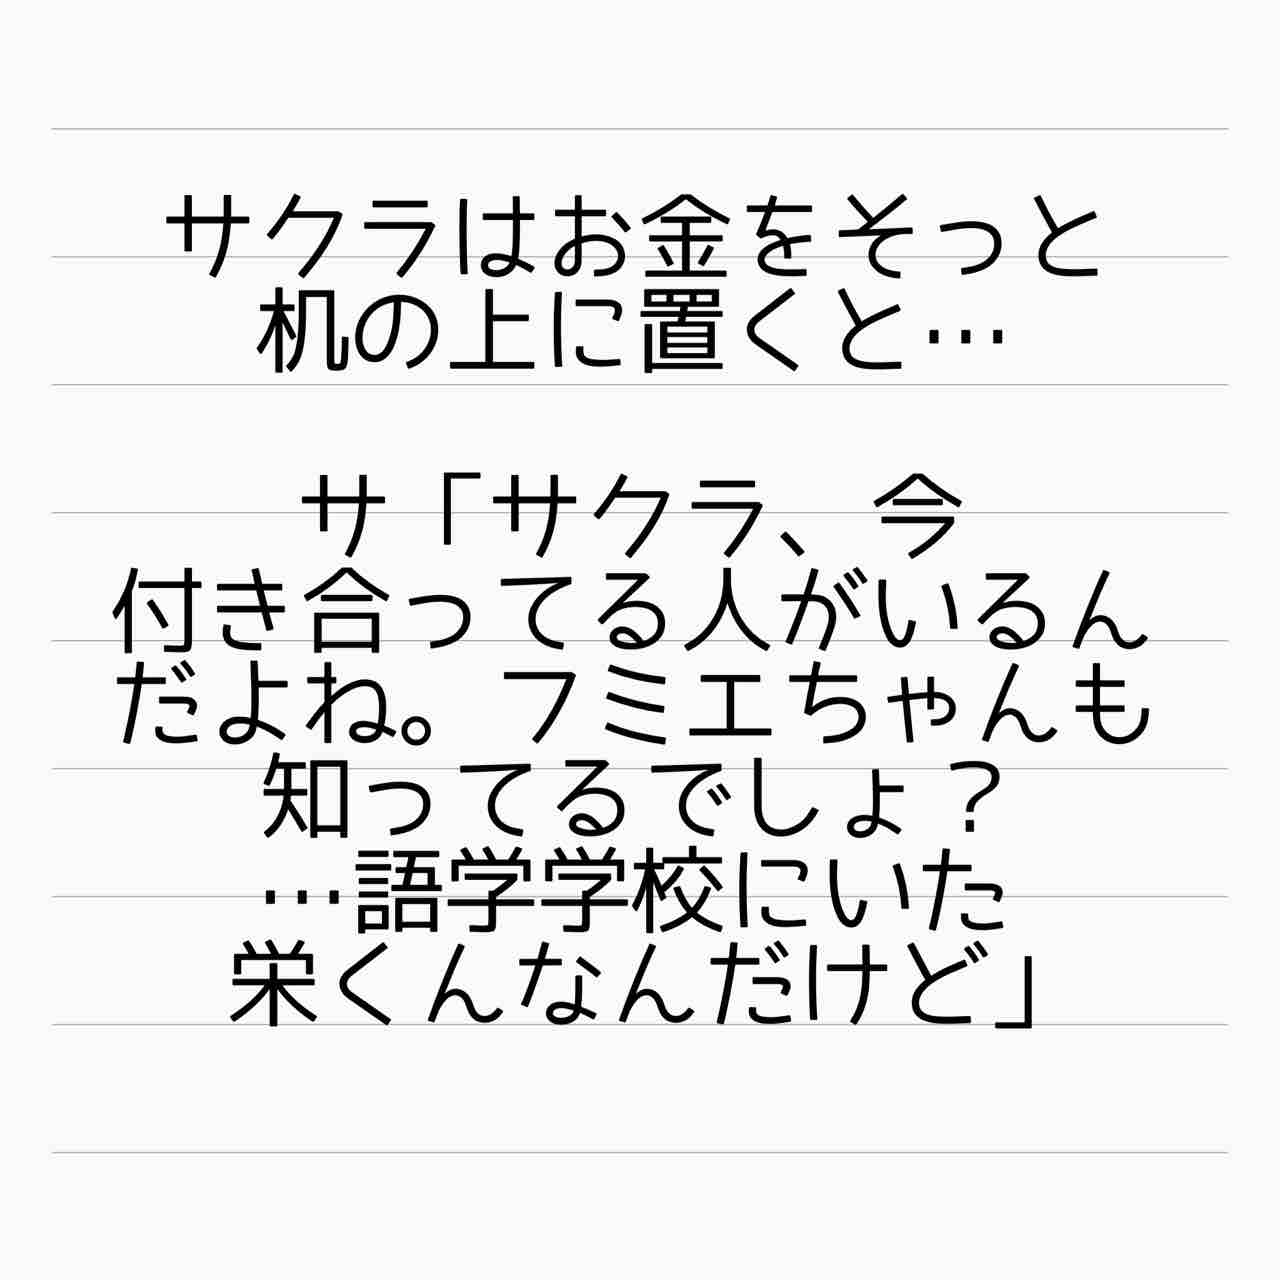 サクラはお金をそっと
机の上に置くと…
サ「サクラ、今
付き合ってる人がいるん
だよね。フミエちゃんも
知ってるでしょ？
…語学学校にいた
栄くんなんだけど」